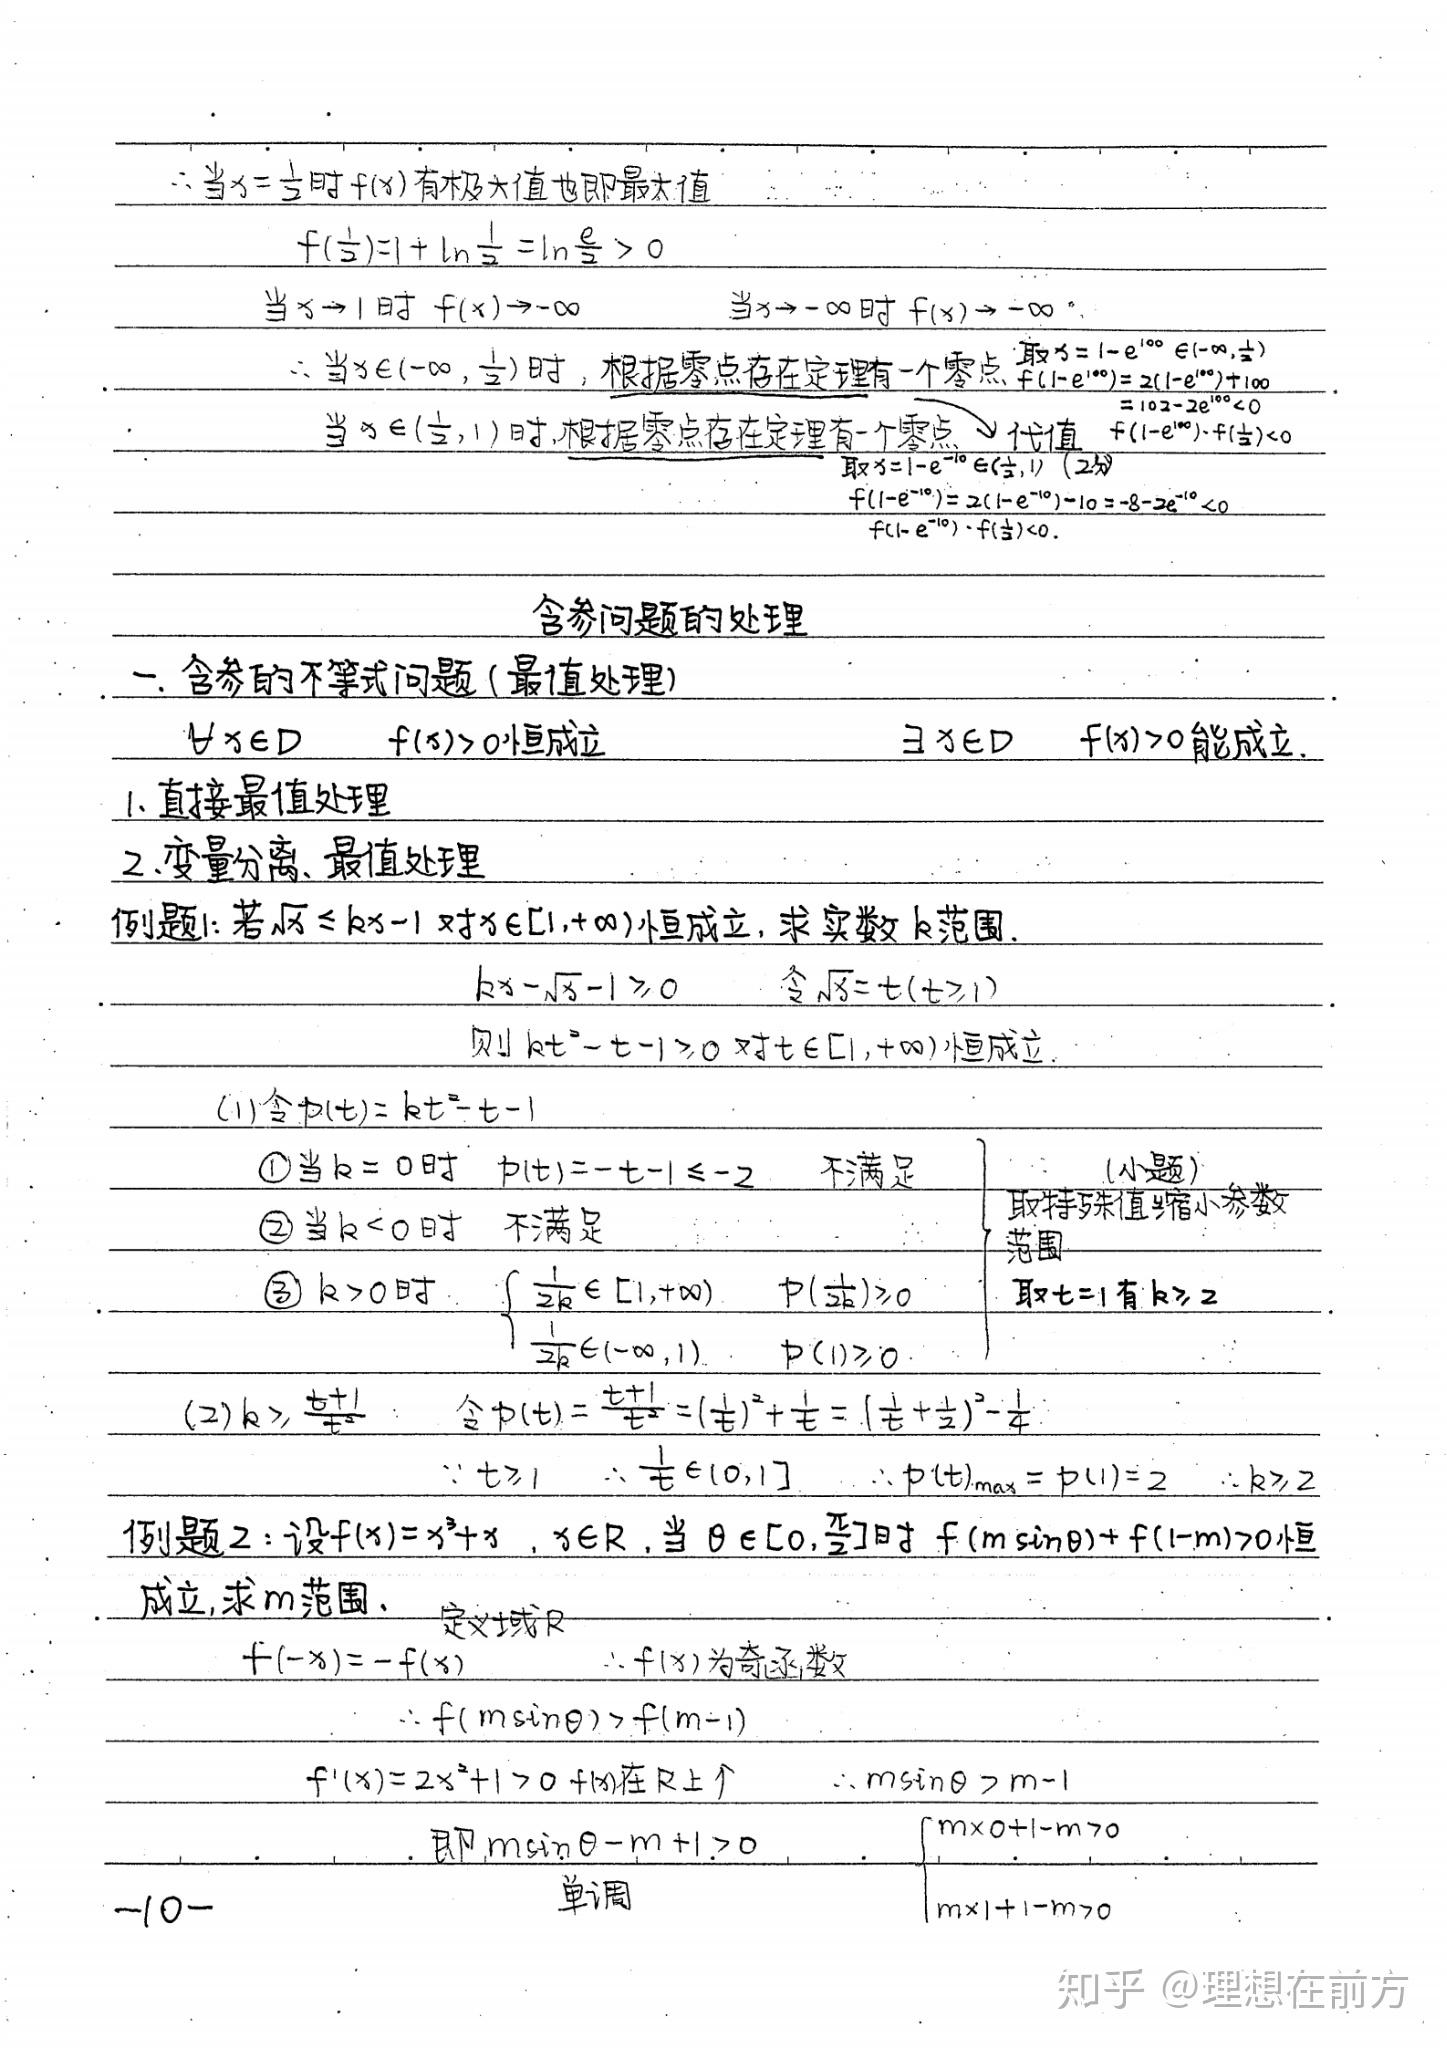 ∴当x=1/2时f(x)有极大值也即最大值
f(1/2)=1+ln 1/2=ln e/2>0
当x→1时 f(x)→-∞ 当x→-∞时 f(x)→-∞
∴当x∈(-∞,1/2)时,根据零点存在定理有一个零点
取x=1-e^100 ∈(-∞,1/2)
f(1-e^100)=2(1-e^100)+100
=102-2e^100<0
f(1-e^100)·f(1/2)<0
当x∈(1/2,1)时,根据零点存在定理有一个零点 ↘代值
取x=1-e^-10∈(1/2,1) (2分)
f(1-e^-10)=2(1-e^-10)-10=-8-2e^-10<0
f(1-e^-10)·f(1/2)<0.
含参问题的处理
一、含参的不等式问题(最值处理)
∀x∈D f(x)>0恒成立 ∃x∈D f(x)>0能成立.
1、直接最值处理
2、变量分离、最值处理
例题1:若√x≤kx-1对x∈[1,+∞)恒成立,求实数k范围.
kx-√x-1≥0 令√x=t(t≥1)
则kt²-t-1≥0对t∈[1,+∞)恒成立.
(1)令p(t)=kt²-t-1
①当k=0时 p(t)=-t-1≤-2 不满足
②当k<0时 不满足
③k>0时 { 1/2k∈[1,+∞) p(1/2k)≥0
1/2k∈(-∞,1) p(1)≥0
(小题)
取特殊值缩小参数
范围
取t=1有k≥2
(2)k≥(t+1)/t² 令p(t)=(t+1)/t²=(1/t)²+1/t=(1/t+1/2)²-1/4
∵t≥1 ∴1/t∈(0,1] ∴p(t)max=p(1)=2 ∴k≥2
例题2:设f(x)=x³+x,x∈R,当θ∈[0,π/2]时 f(msinθ)+f(1-m)>0恒
成立,求m范围.
定义域R
f(-x)=-f(x) ∴f(x)为奇函数
∴f(msinθ)>f(m-1)
f'(x)=2x²+1>0 f(x)在R上↑ ∴msinθ>m-1
即msinθ-m+1>0 { m×0+1-m>0
单调 m×1+1-m>0
-10-
知乎 @理想在前方